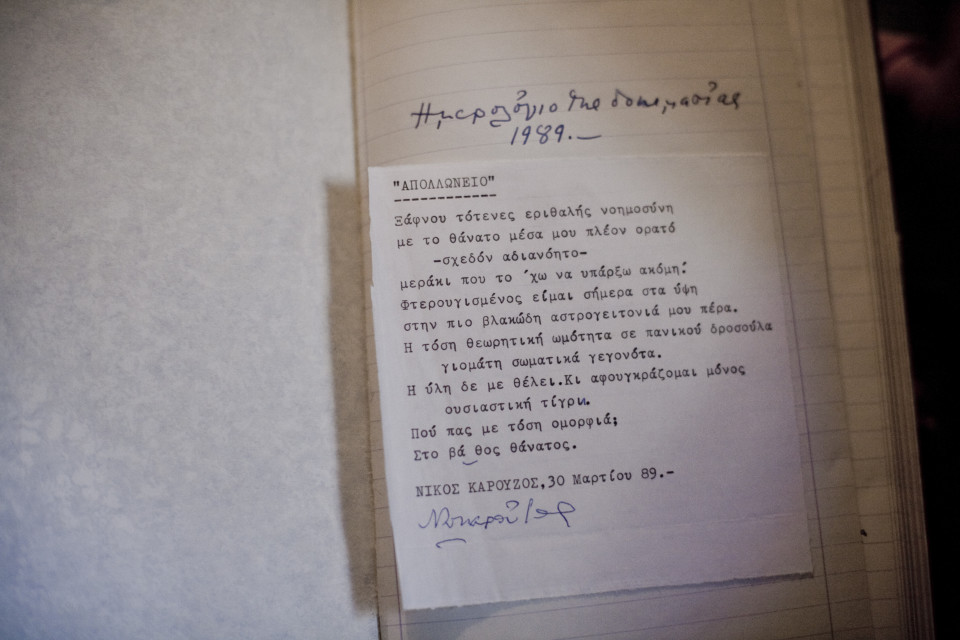 Ημερολόγιο της δοκιμασίας
1989.—
"ΑΠΟΛΛΩΝΕΙΟ"
Ξάφνου τότενες εριθαλής νοημοσύνη
με το θάνατο μέσα μου πλέον ορατό
-σχεδόν αδιανόητο-
μεράκι που το ΄χω να υπάρξω ακόμη!
Φτερουγισμένος είμαι σήμερα στα ύψη
στην πιο βλακώδη αστρογειτονιά μου πέρα.
Η τόση θεωρητική ωμότητα σε πανικού δροσούλα
γιομάτη σωματικά γεγονότα.
Η ύλη δε με θέλει.Κι αφουγκράζομαι μόνος
ουσιαστική τίγρη.
Πού πας με τόση ομορφιά;
Στο βά θος θάνατος.
ΝΙΚΟΣ ΚΑΡΟΥΖΟΣ,30 Μαρτίου 89.-